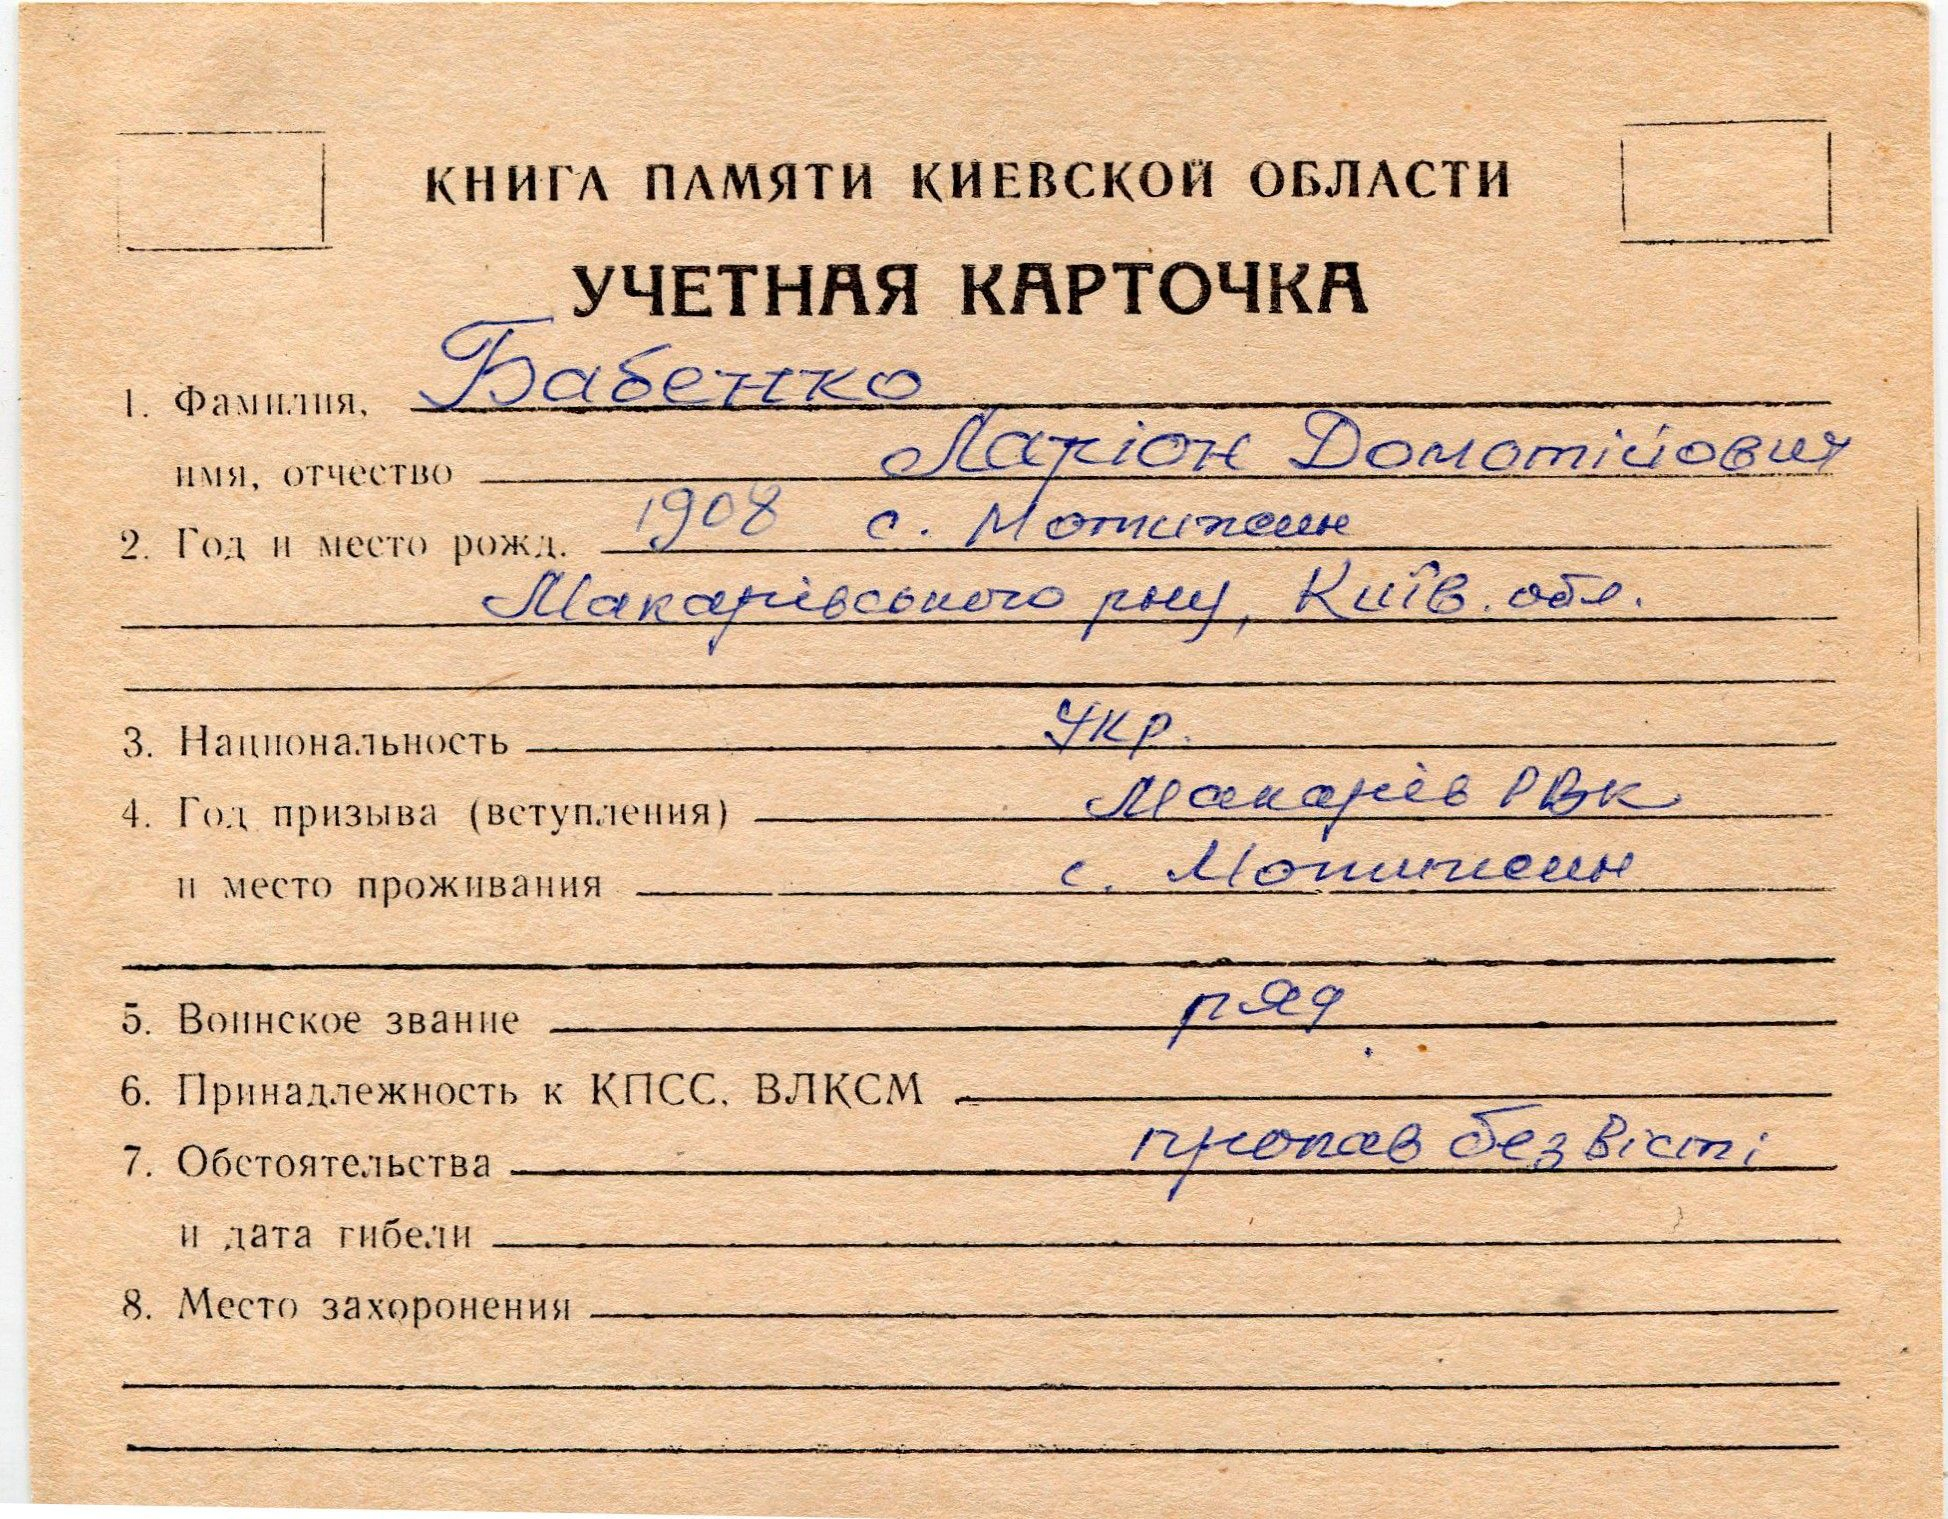 КНИГА ПАМЯТИ КИЕВСКОЙ ОБЛАСТИ
УЧЕТНАЯ КАРТОЧКА
1. Фамилия, Бабенко
имя, отчество Ларіон Домотійович
2. Год и место рожд. 1908 с. Мотижин
Макарівського р-ну, Київ. обл.
3. Национальность Укр.
4. Год призыва (вступления) Макарів РВК
и место проживания с. Мотижин
5. Воинское звание ряд
6. Принадлежность к КПСС, ВЛКСМ
7. Обстоятельства пропав безвісті
и дата гибели
8. Место захоронения